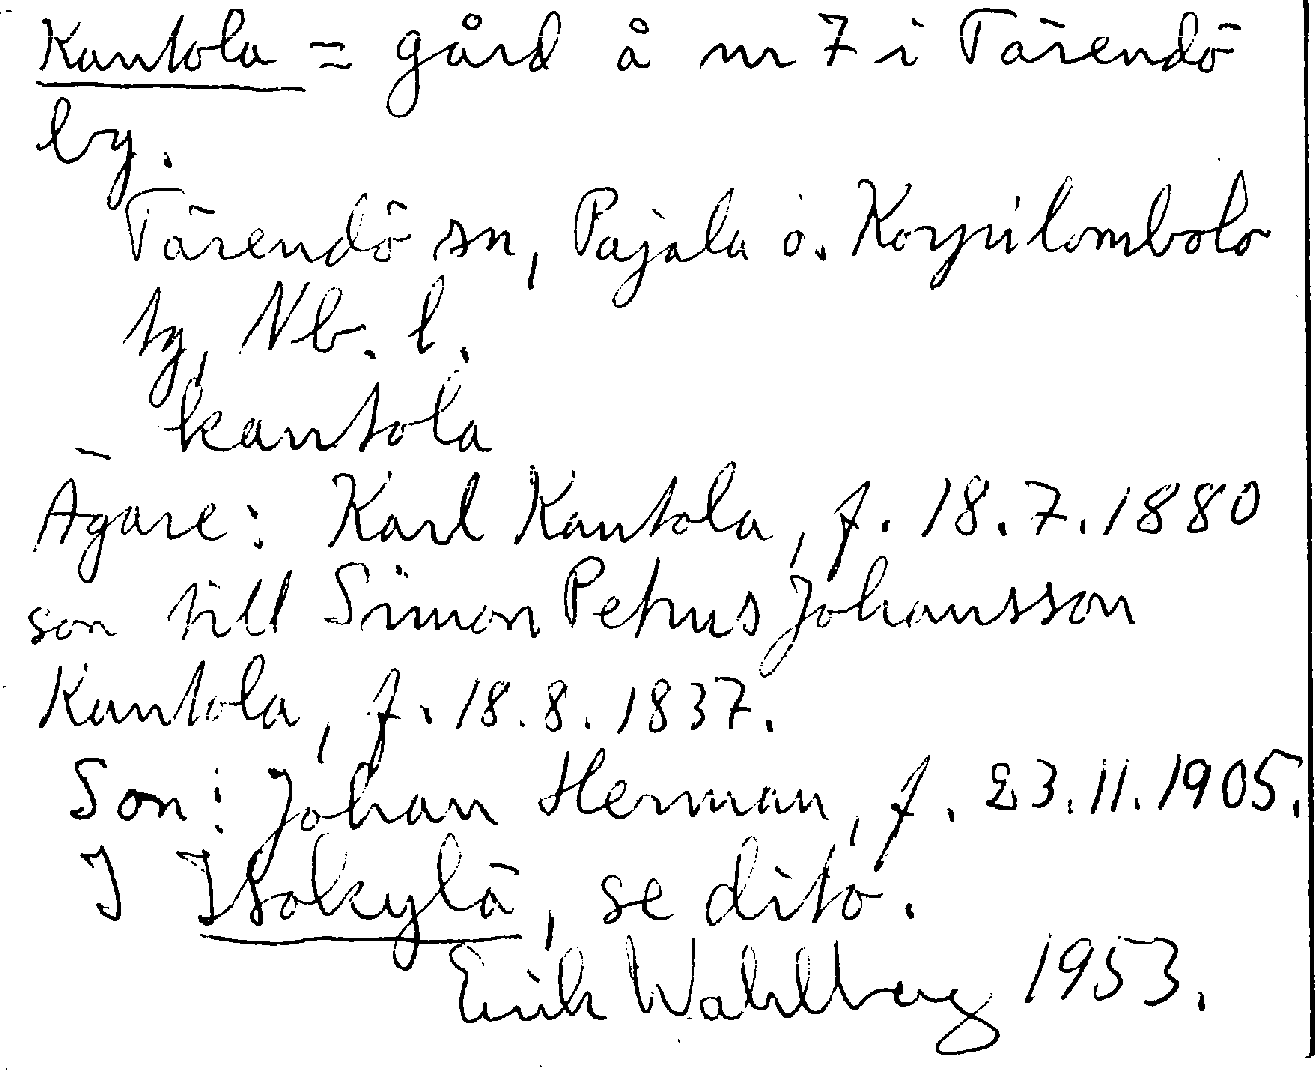 Kantola = gård å nr 7 i Tärendö
by.
Tärendö sn, Pajala o. Korpilombolo
tg, Nb. l.
kantola
Ägare: Karl Kantola, f. 18.7.1880
son till Simon Petrus Johansson
Kantola, f. 18.8.1837.
Son: Johan Herman, f. 23.11.1905.
I Isokylä, se dito.
Erik Wahlberg 1953.